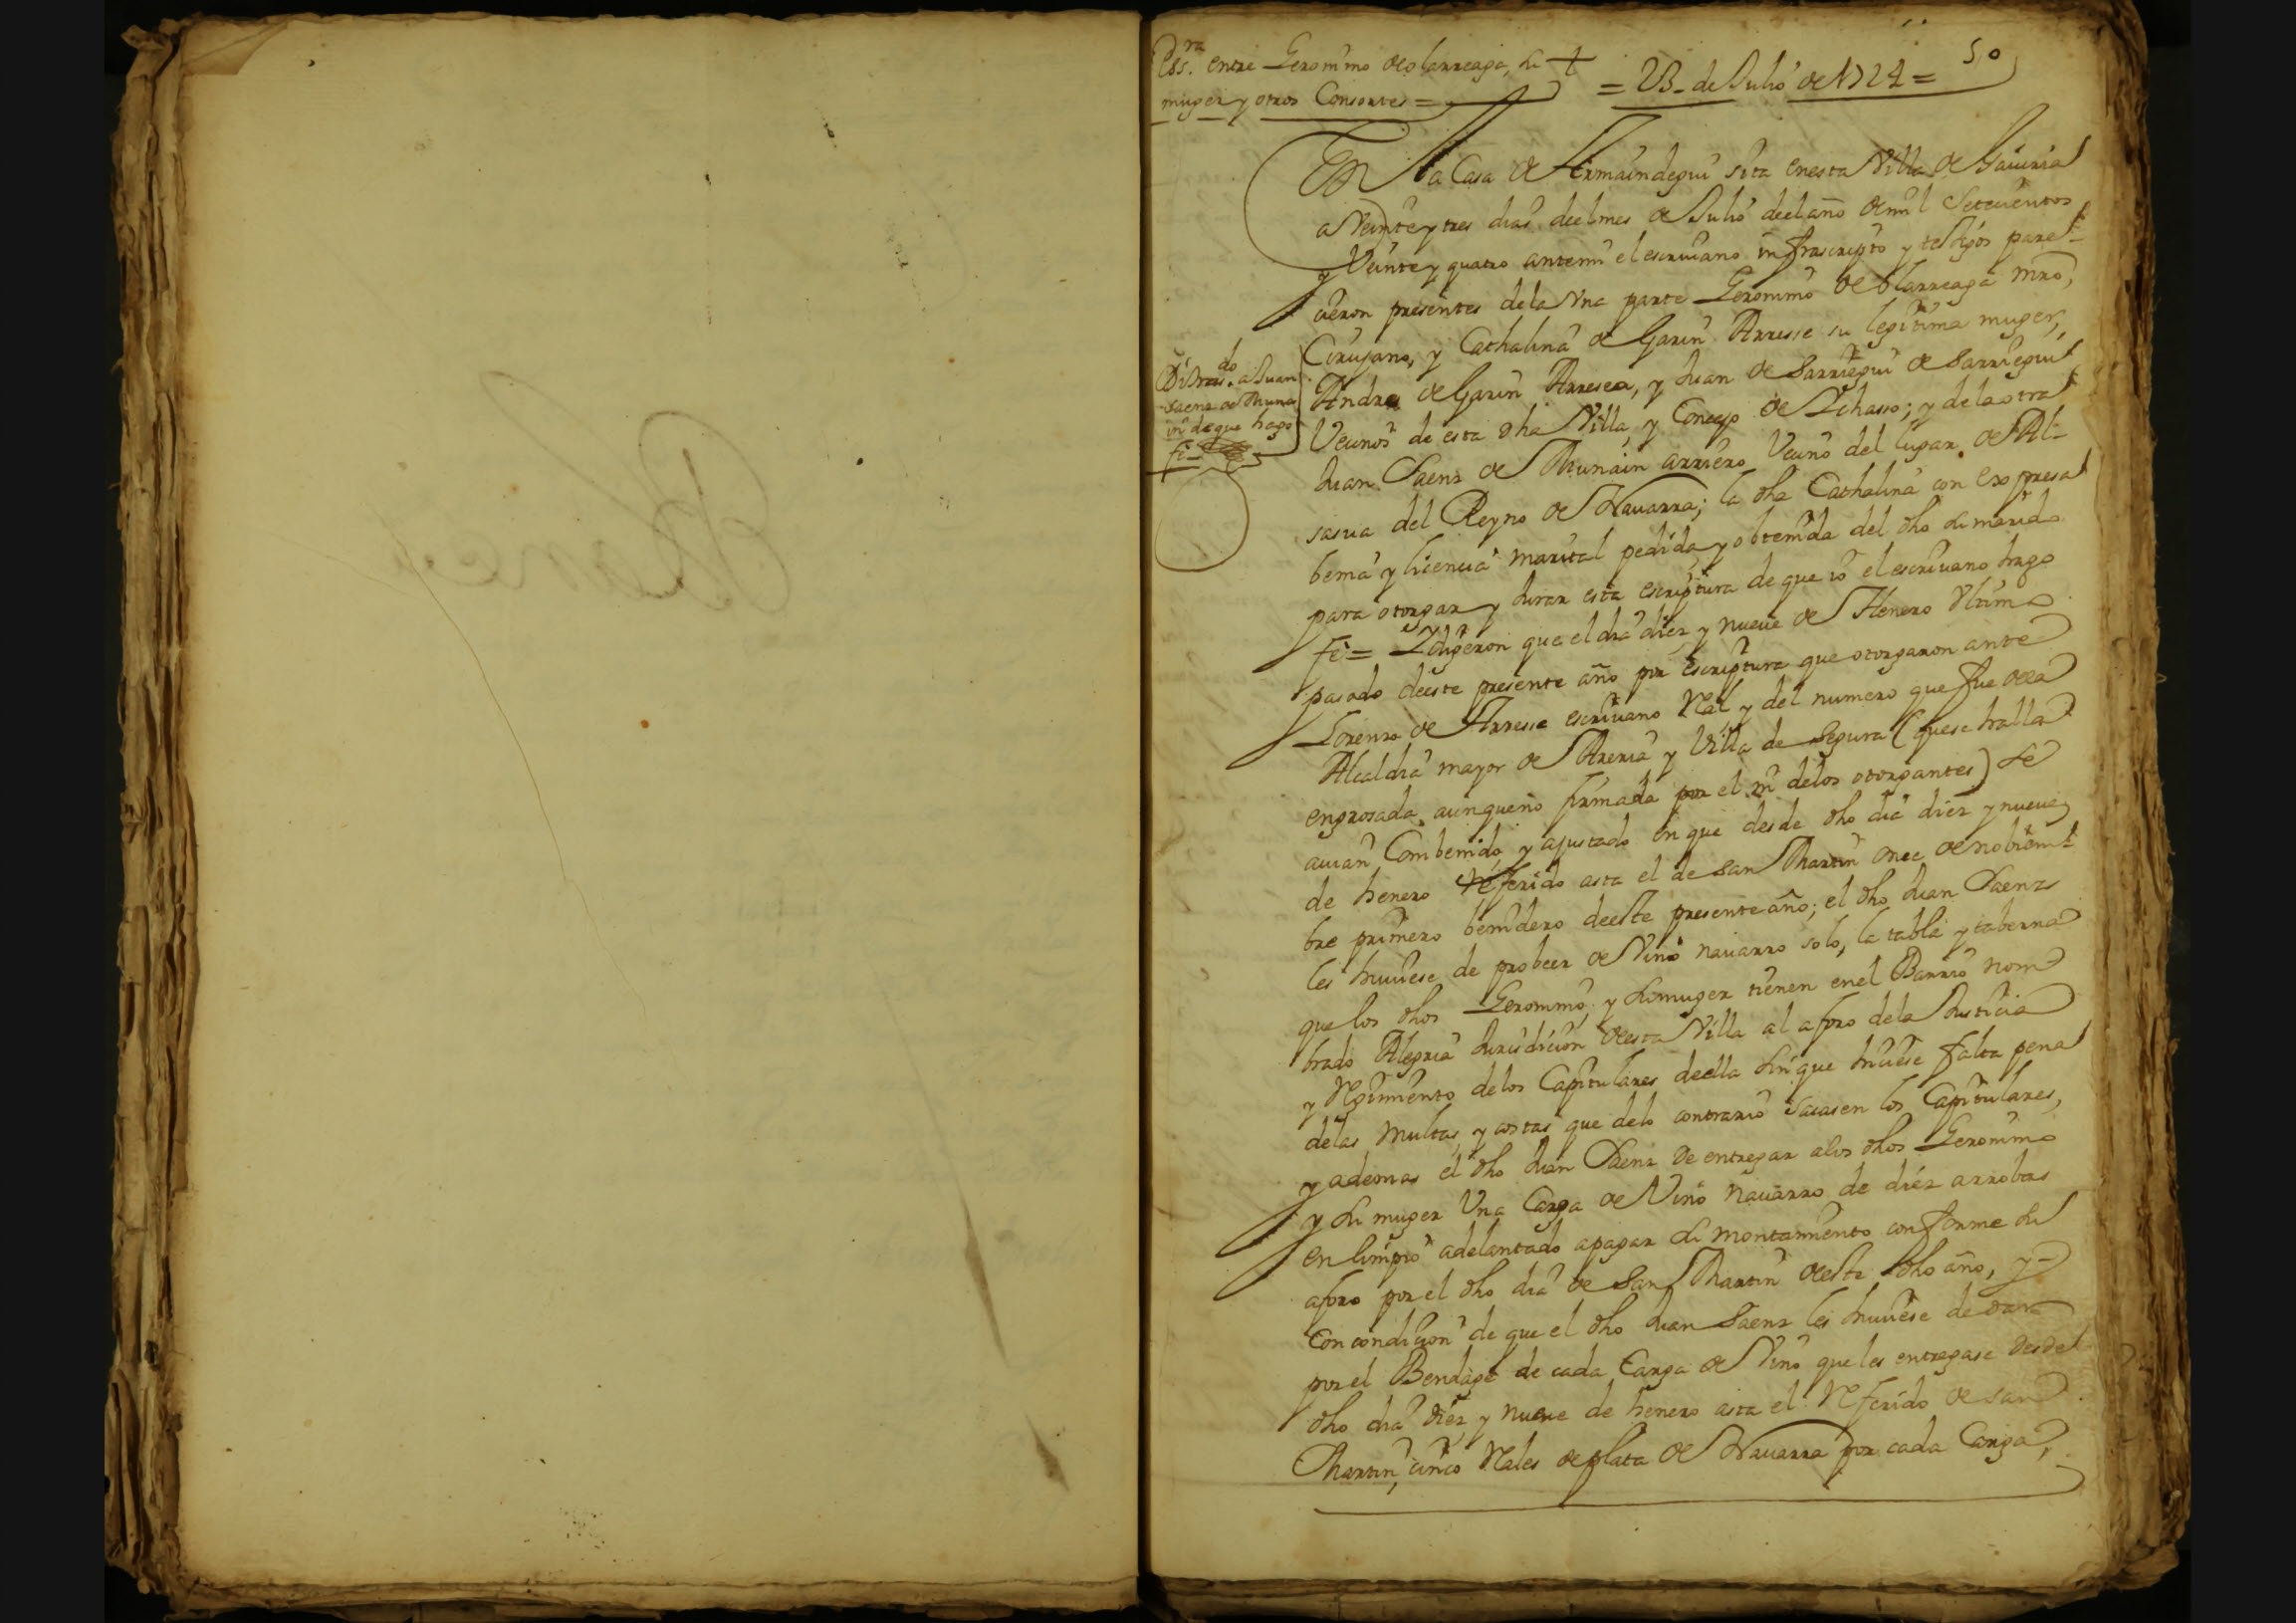 Ess.ra entre Geronimo de olarreaga, su
muger y otros Consortes =
= 23 - de Julio de 1724 =
50
En la Casa de Armaindegui sita enesta Villa de Gauiria
a Veinte y tres dias deelmes de Julio deel año de mil Setecientos
y Veinte y quatro antemi el escriuano infrascripto y testigos pare-
cieron presentes dela Vna parte Geronimo de olarreaga mro,
Cirujano, y Cathalina de Garin Arresse su legitima muger,
Andres de Garin Arresea, y Juan de Sarriegui de Sarriegui
Vecinos de esta dha Villa, y Concejo de Ichasso; y dela otra
Juan Saenz de Munain arriero Vecino del lugar de Al-
sasua del Reyno de Nauarra; la dha Cathalina con expresa
benia y licencia marital pedida, y obtenida del dho su marido
para otorgar y Jurar esta escriptura de que io el escriuano hago
fe = Y digeron que el dia diez y nueue de Henero Vltimo
pasado deeste presente año por escriptura que otorgaron ante
Lorenzo de Arresse escriuano Real y del numero que fue dela
Alcaldia mayor de Areria y Villa de Segura (quese halla
engrosada aunqueno firmada por el in delos otorgantes) se
auian Combenido y ajustado en que desde dho dia diez y nueue
de henero referido asta el de San Martin once de nobiem-
bre primero benidero deeste presente año; el dho Juan Saenz
les huuiese de probeer de Vino nauarro solo, la tabla y taberna
que los dhos Geronimo, y su muger tienen enel Barrio nom
brado Alegria Jurisdicion deesta Villa al aforo dela Justicia
y Regimiento delos Capitulares deella sin que huuiese falta pena
delas multas, y costas que delo contrario sacasen los Capitulares,
y ademas el dho Juan Saenz de entregar alos dhos Geronimo
y su muger Vna Carga de Vino nauarro de diez arrobas
en limpio adelantado apagar su montamiento conforme su
aforo por el dho dia de San Martin deeste dho año, y -
Con condicion de que el dho Juan Saenz les huuiese de dar
por el Bendage de cada Carga de Vino que les entregase desde
dho dia diez y nueue de henero asta el Referido de san
Martin, cinco Reales de plata de Nauarra por cada Carga,
Di tras.do a Juan
Saenz de Muna
in de que hago
fe -